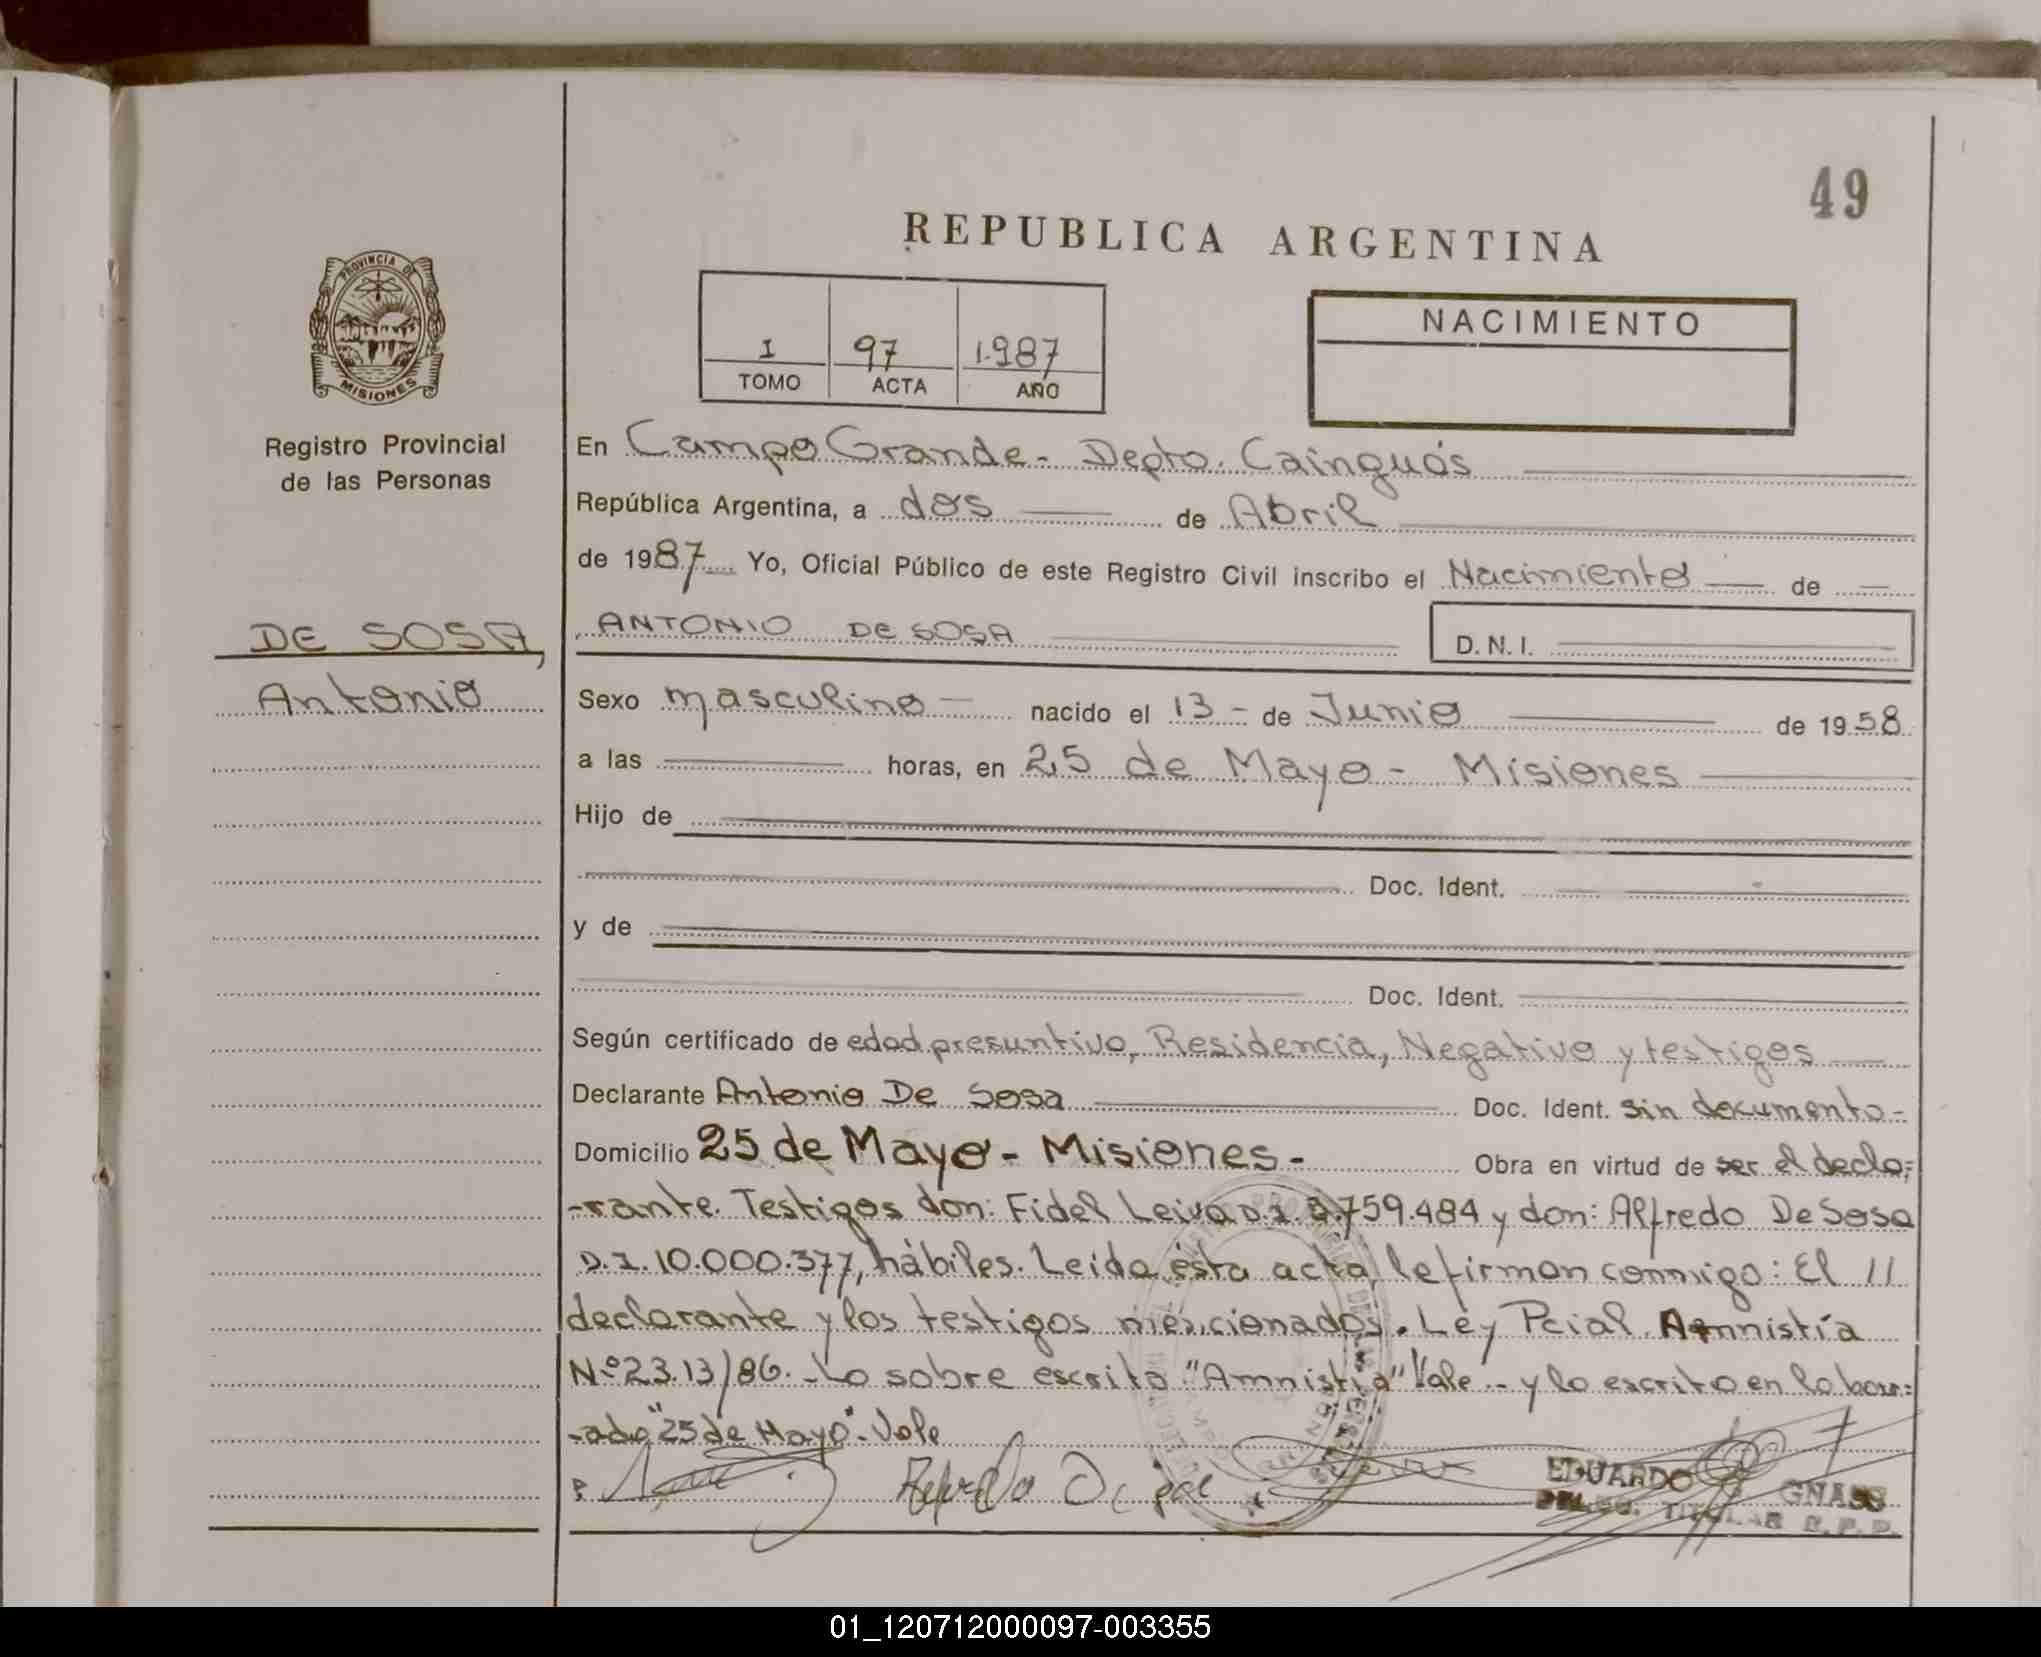 49
REPUBLICA ARGENTINA
PROVINCIA DE
MISIONES
Registro Provincial
de las Personas
I 97 1.987
TOMO ACTA AÑO
NACIMIENTO
En Campo Grande - Depto. Cainguás
República Argentina, a dos de Abril
de 1987 Yo, Oficial Público de este Registro Civil inscribo el Nacimiento de
DE SOSA,
Antonio
ANTONIO DE SOSA D. N. I.
Sexo masculino - nacido el 13 - de Junio de 1958
a las horas, en 25 de Mayo - Misiones
Hijo de
Doc. Ident.
y de
Doc. Ident.
Según certificado de edad presuntiva, Residencia, Negativo y testigos
Declarante Antonio De Sosa Doc. Ident. sin documento.-
Domicilio 25 de Mayo - Misiones - Obra en virtud de ser el decla-
-rante. Testigos don: Fidel Leiva D.I. 759.484 y don: Alfredo De Sosa
D.I. 10.000.377, hábiles. Leida ésta acta lefirman conmigo: El 11
declarante y los testigos mencionados. Ley Pcial Amnistía
Nº 23.13/86. - Lo sobre escrito "Amnistia" Vale - y lo escrito en lo borr-
-ado "25 de Mayo" - Vale
EDUARDO GNASS
DELEG. TITULAR R. P. P.
01_120712000097-003355